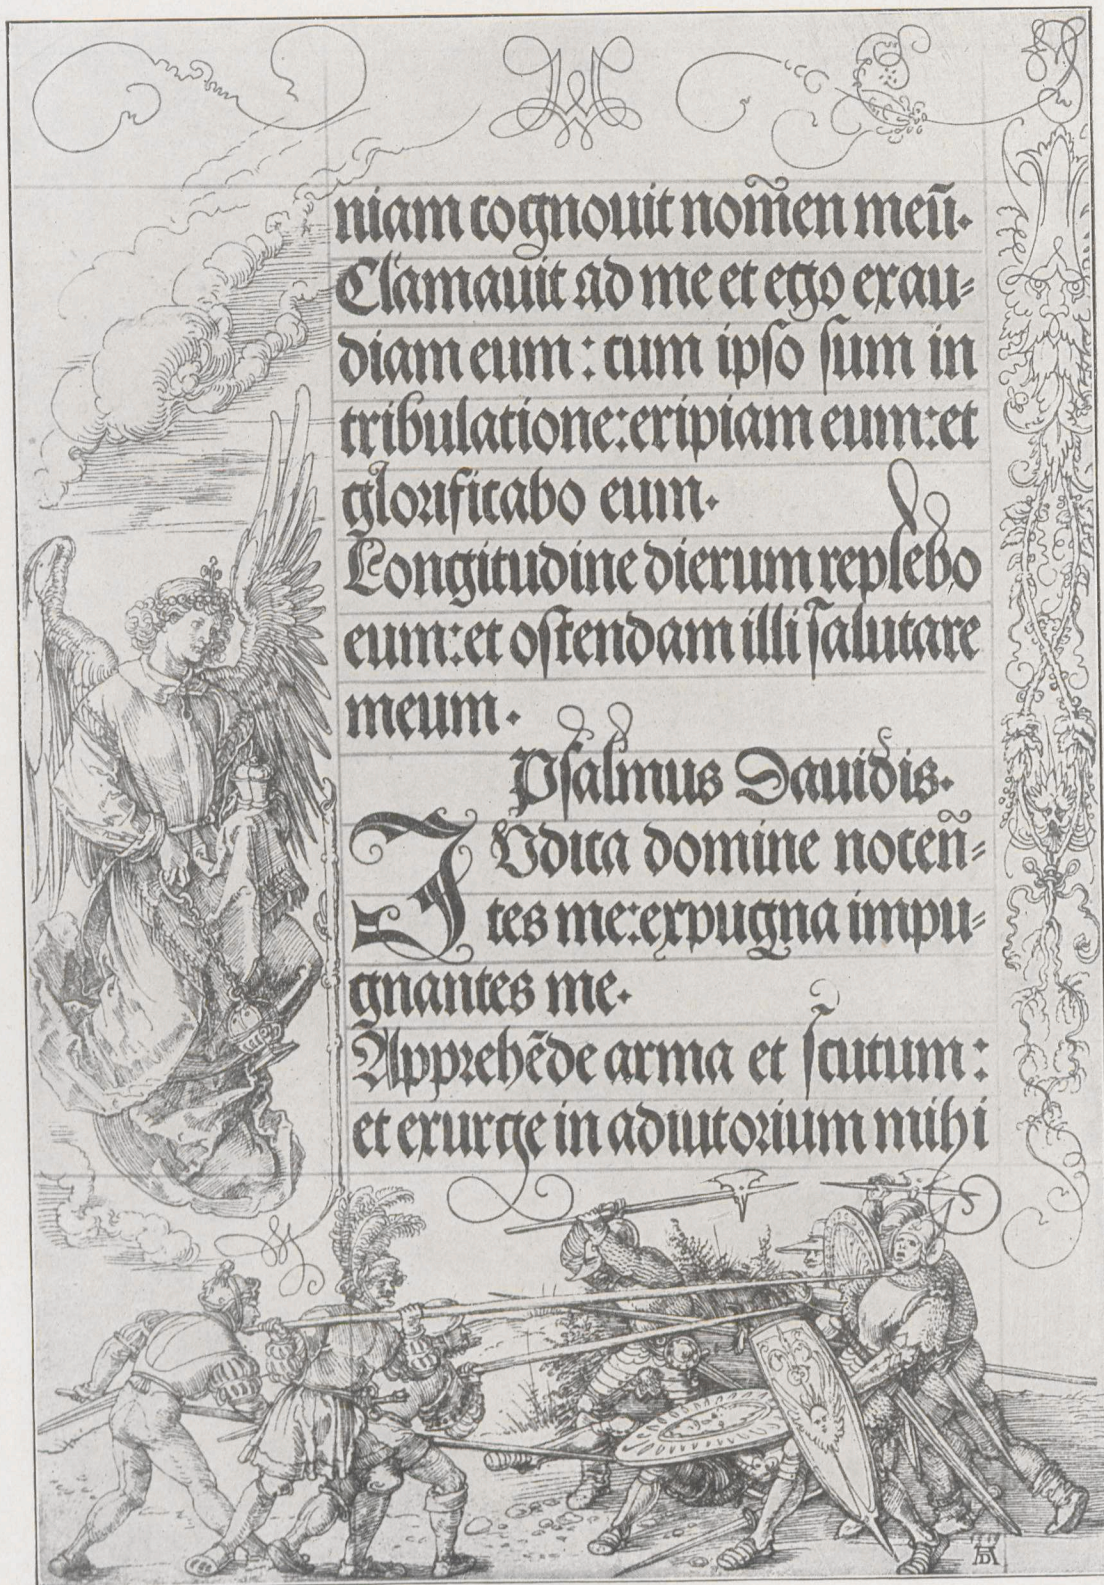 niam cognouit nom̃en meũ.
Clamauit ad me et ego exau=
diam eum : cum ipſo ſum in
tribulatione:eripiam eum:et
glorificabo eum.
Longitudine dierum replebo
eum:et oſtendam illi ſalutare
meum.
Pſalmus Dauidis.
IVdica domine nocen̄=
tes me:expugna impu=
gnantes me.
Apprehēde arma et ſcutum :
et exurge in adiutorium mihi
AD